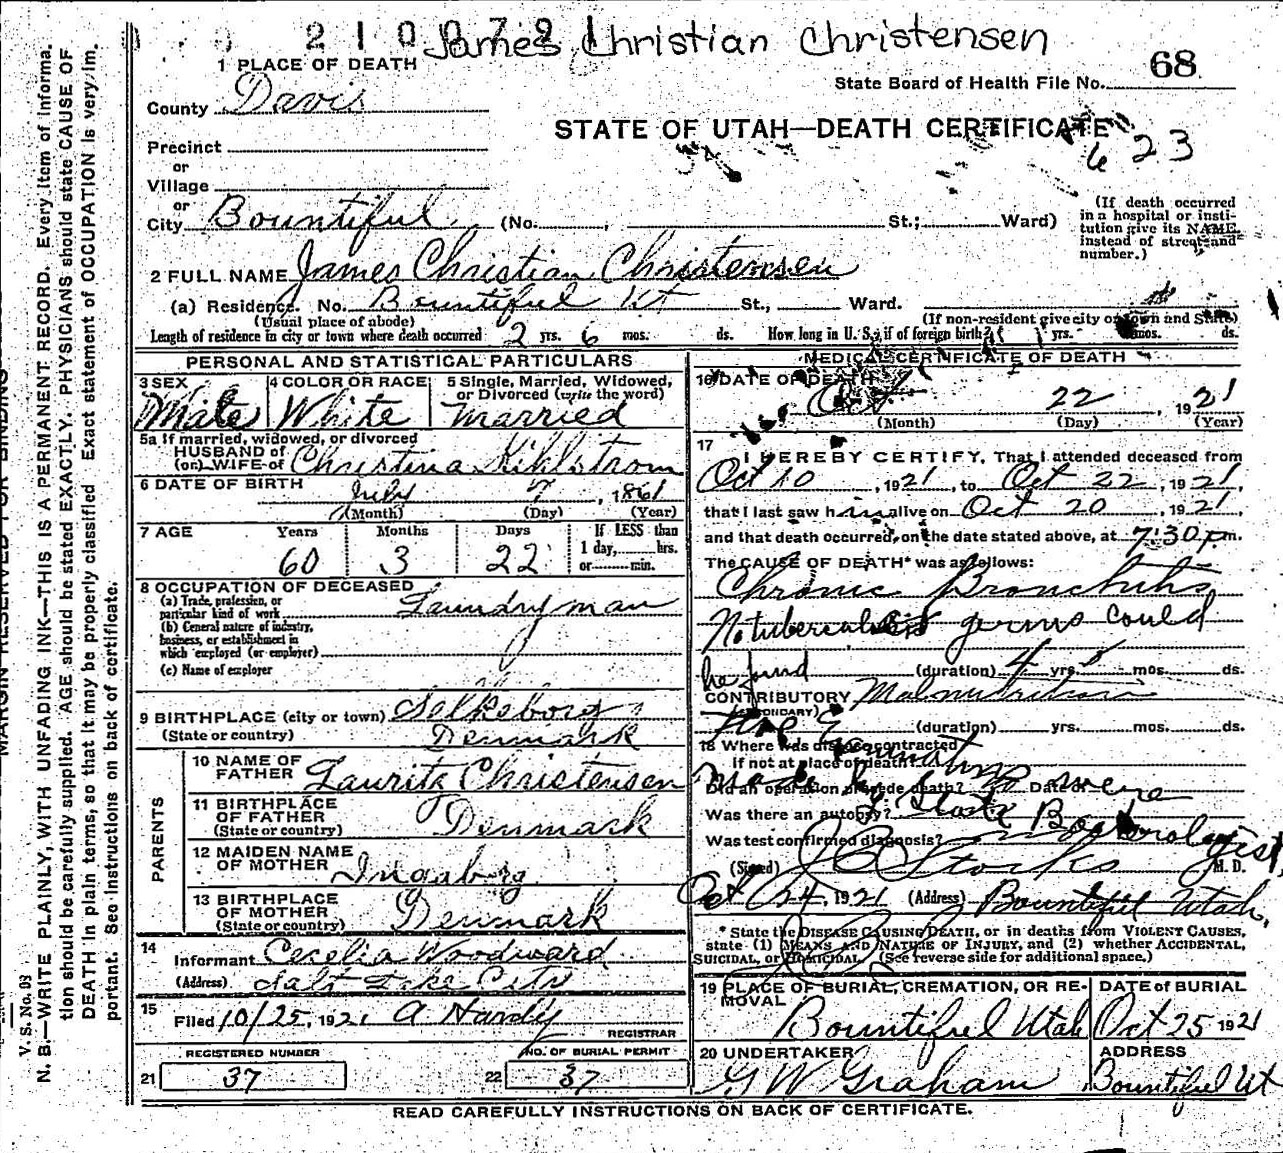 2100721 James Christian Christensen
1 PLACE OF DEATH
State Board of Health File No. 68
County Davis
STATE OF UTAH—DEATH CERTIFICATE
623
Precinct
or
Village
or
City Bountiful (No. , St.; Ward)
(If death occurred
in a hospital or insti-
tution give its NAME
instead of street and
number.)
2 FULL NAME James Christian Christensen
(a) Residence. No. Bountiful Ut St., Ward.
(Usual place of abode)
(If non-resident give city or town and State)
Length of residence in city or town where death occurred 2 yrs. 6 mos. ds. How long in U. S., if of foreign birth? yrs. mos. ds.
PERSONAL AND STATISTICAL PARTICULARS
3 SEX
Male
4 COLOR OR RACE
White
5 Single, Married, Widowed,
or Divorced (write the word)
Married
5a If married, widowed, or divorced
HUSBAND of
(or) WIFE of Christina Kihlstrom
6 DATE OF BIRTH
July 7, 1861
(Month) (Day) (Year)
7 AGE Years Months Days If LESS than
1 day, hrs.
or min.
60 3 22
8 OCCUPATION OF DECEASED
(a) Trade, profession, or
particular kind of work Laundryman
(b) General nature of industry,
business, or establishment in
which employed (or employer)
(c) Name of employer
9 BIRTHPLACE (city or town) Selkeborg,
(State or country) Denmark
PARENTS
10 NAME OF
FATHER Lauritz Christensen
11 BIRTHPLACE
OF FATHER
(State or country) Denmark
12 MAIDEN NAME
OF MOTHER Ingeborg
13 BIRTHPLACE
OF MOTHER
(State or country) Denmark
14
Informant Cecelia Woodward
(Address) Salt Lake City
15
Filed 10/25, 1921 A Hardy
REGISTRAR
REGISTERED NUMBER
21 37
NO. OF BURIAL PERMIT
22 37
MEDICAL CERTIFICATE OF DEATH
16 DATE OF DEATH
Oct 22, 1921
(Month) (Day) (Year)
17
I HEREBY CERTIFY, That I attended deceased from
Oct 10, 1921, to Oct 22, 1921,
that I last saw him alive on Oct 20, 1921,
and that death occurred, on the date stated above, at 7:30 p.m.
The CAUSE OF DEATH* was as follows:
Chronic Bronchitis
No tuberculosis germs could
be found (duration) 4 yrs. mos. ds.
CONTRIBUTORY Malnutrition
(SECONDARY)
(duration) yrs. mos. ds.
18 Where was disease contracted
if not at place of death?
Did an operation precede death? Date of
Was there an autopsy?
Was test confirmed diagnosis?
made by
Bacteriologist
(Signed) Stocks M. D.
Oct 24, 1921 (Address) Bountiful Utah,
* State the DISEASE CAUSING DEATH, or in deaths from VIOLENT CAUSES,
state (1) MEANS AND NATURE OF INJURY, and (2) whether ACCIDENTAL,
SUICIDAL, or HOMICIDAL. (See reverse side for additional space.)
19 PLACE OF BURIAL, CREMATION, OR RE-
MOVAL
Bountiful Utah
DATE of BURIAL
Oct 25 1921
20 UNDERTAKER
G W Graham
ADDRESS
Bountiful Ut
READ CAREFULLY INSTRUCTIONS ON BACK OF CERTIFICATE.
MARGIN RESERVED FOR BINDING
V. S. No. 98
N. B.—WRITE PLAINLY, WITH UNFADING INK—THIS IS A PERMANENT RECORD. Every item of informa-
tion should be carefully supplied. AGE should be stated EXACTLY. PHYSICIANS should state CAUSE OF
DEATH in plain terms, so that it may be properly classified. Exact statement of OCCUPATION is very im-
portant. See Instructions on back of certificate.